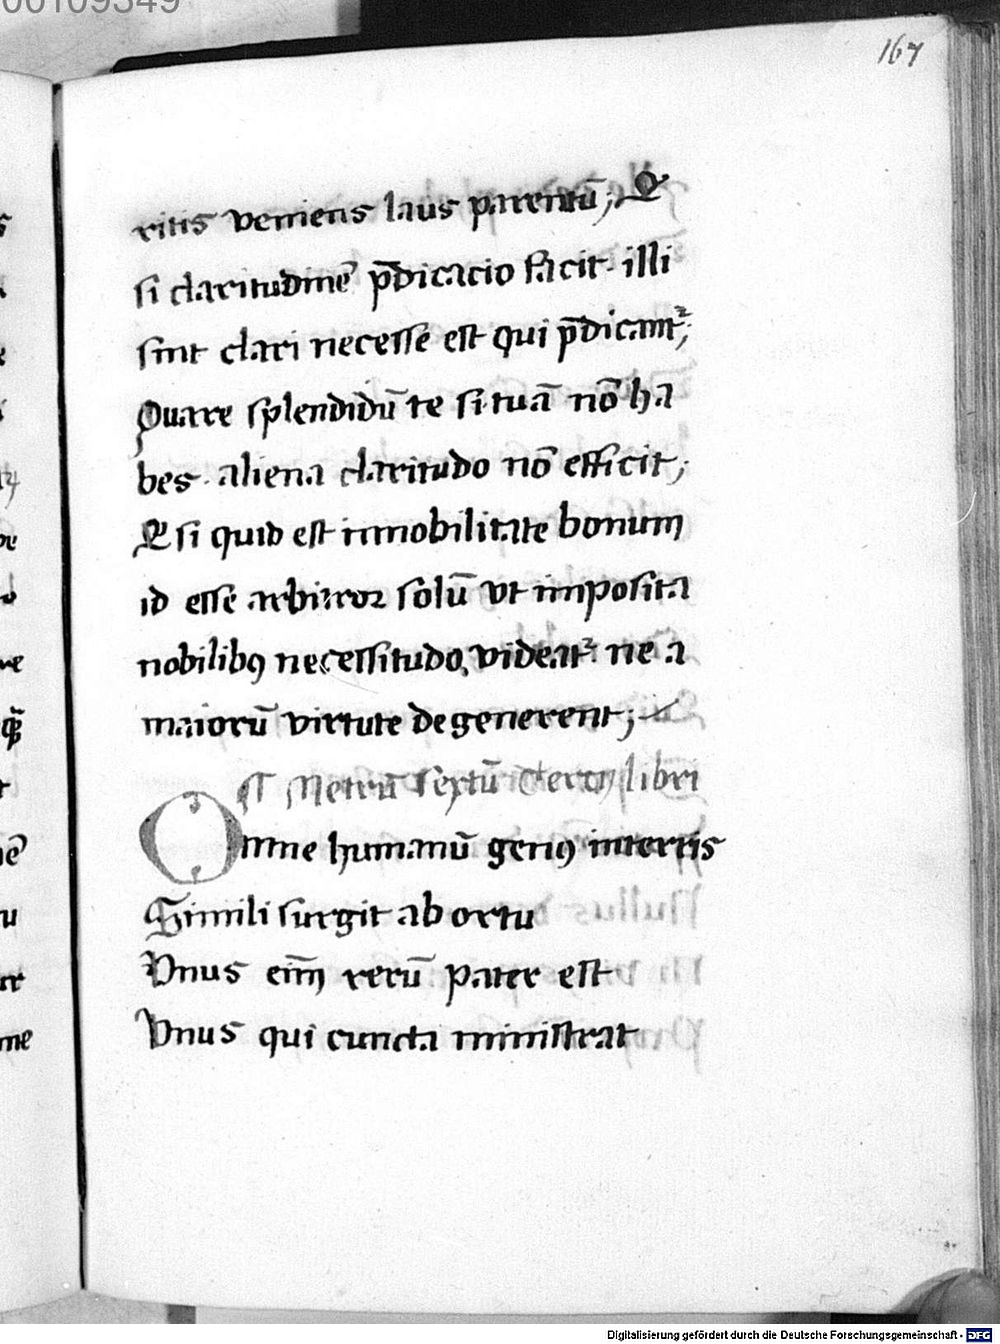 00109349
167
ritis veniens laus parentū; Q
si claritudinē p̄dicacio facit. illi
sint clari necesse est qui p̄dicant᷑;
Quare splendidū te si tuā nō ha
bes. aliena claritudo nō efficit;
Q si quid est innobilitate bonum
id esse arbitror solū vt imposita
nobilibꝰ necessitudo, videat᷑ ne a
maiorū virtute degenerent;
Metrū sextū tercij libri
Omne humanū genꝰ interris
Simili surgit ab ortu
Vnus eīm rerū pater est
Vnus qui cuncta ministrat
Digitalisierung gefördert durch die Deutsche Forschungsgemeinschaft - DFG